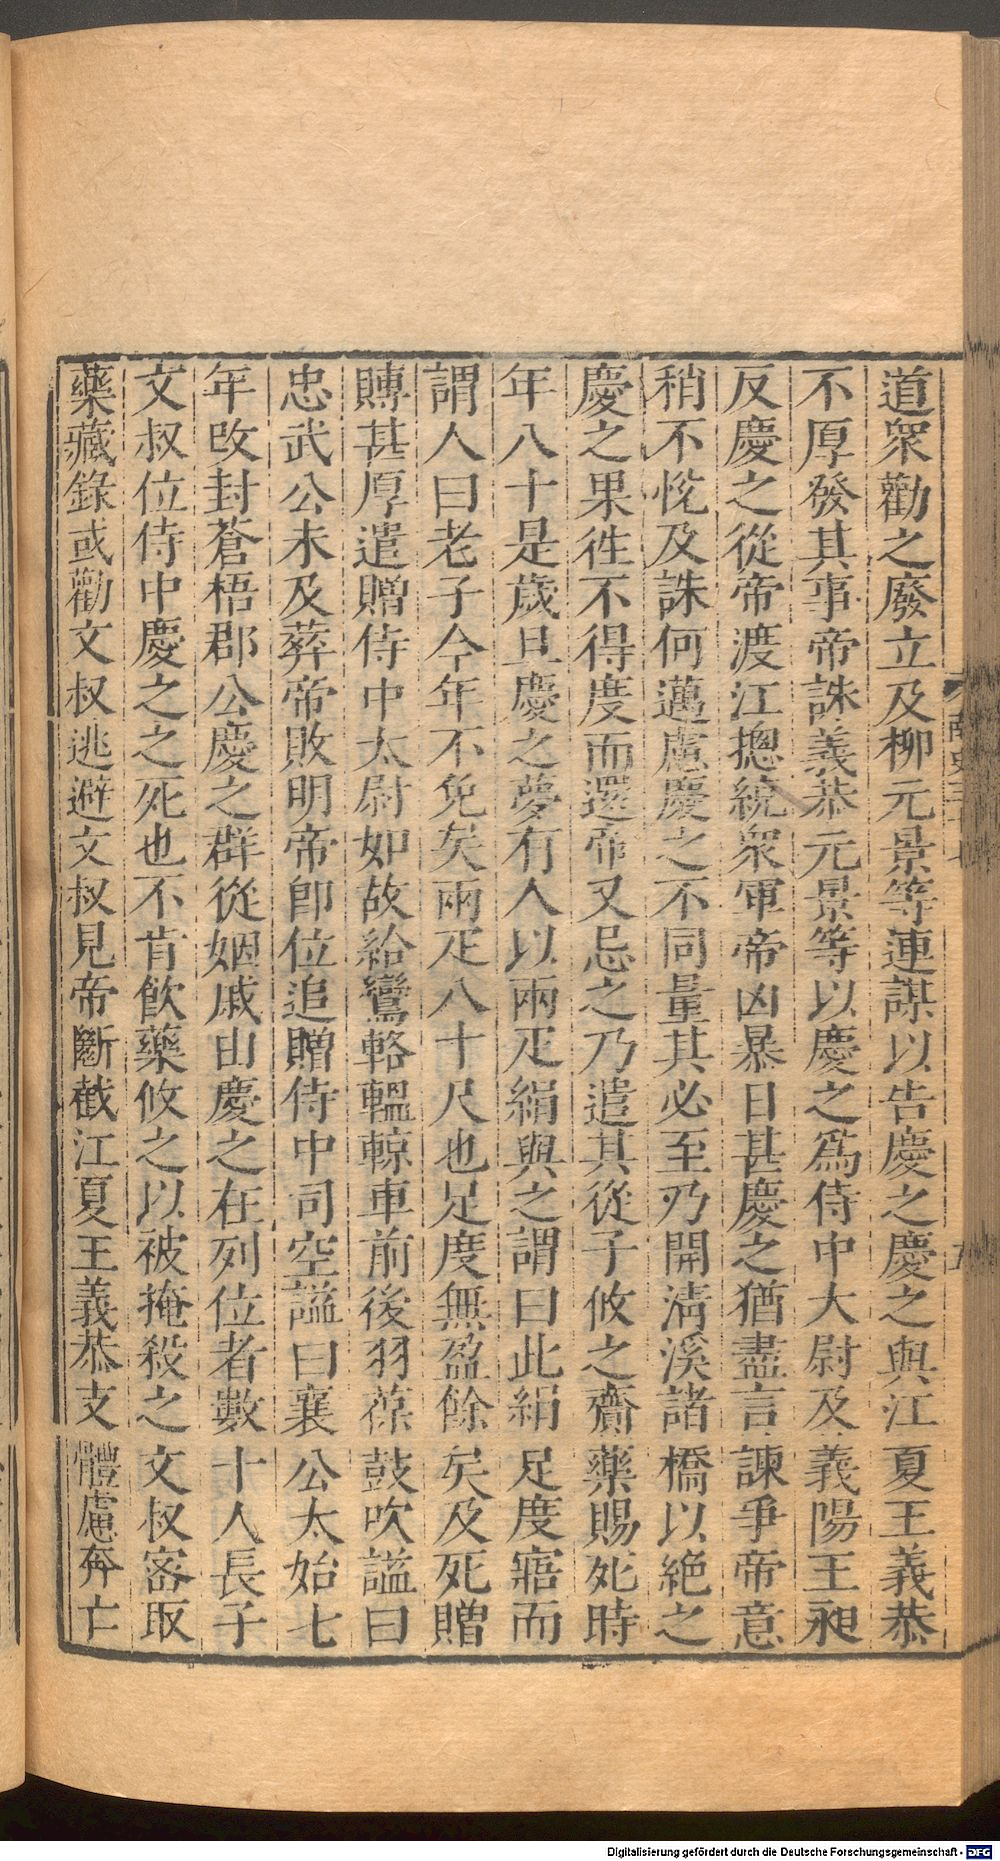 道衆勸之廢立及柳元景等連謀以告慶之慶之與江夏王義恭
不厚發其事帝誅義恭元景等以慶之爲侍中大尉及義陽王昶
反慶之從帝渡江摠統衆軍帝凶暴日甚慶之猶盡言諫爭帝意
稍不恱及誅何邁慮慶之不同量其必至乃開淸溪諸橋以絶之
慶之果徃不得度而還帝又忌之乃遣其從子攸之齎藥賜死時
年八十是歲旦慶之夢有人以兩疋絹與之謂曰此絹足度寤而
謂人曰老子今年不免矣兩疋八十尺也足度無盈餘矣及死贈
賻甚厚遣贈侍中太尉如故給鸞輅轀輬車前後羽葆鼓吹謚曰
忠武公未及葬帝敗明帝即位追贈侍中司空謚曰襄公太始七
年改封蒼梧郡公慶之群從姻戚由慶之在列位者數十人長子
文叔位侍中慶之之死也不肯飮藥攸之以被掩殺之文叔密取
藥藏錄或勸文叔逃避文叔見帝斷截江夏王義恭支體慮奔亡
南史三十七
五
Digitalisierung gefördert durch die Deutsche Forschungsgemeinschaft - DFG